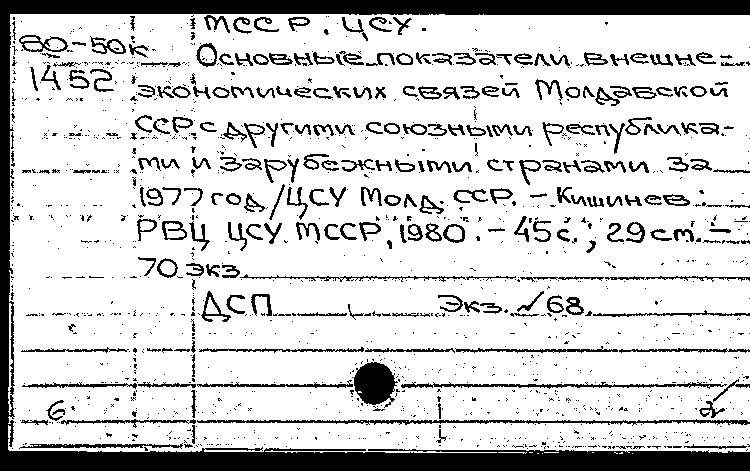 МССР. ЦСУ.
80-50к
Основные показатели внешне-
1452
экономических связей Молдавской
ССР с другими союзными республика-
ми и зарубежными странами за
1977 год /ЦСУ Молд. ССР. – Кишинев:
РВЦ ЦСУ МССР, 1980. – 45 с.; 29 см. –
70 экз.
ДСП Экз. № 68.
6.
2